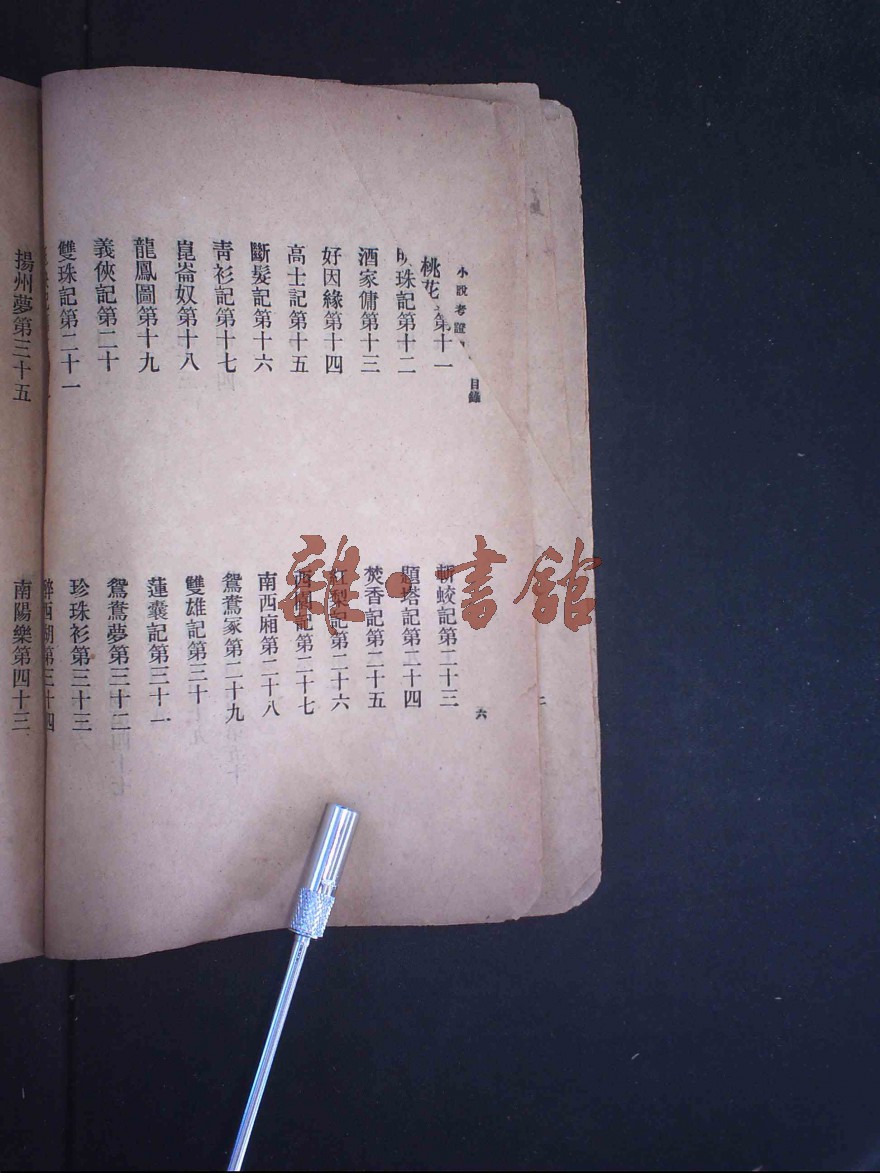 小說考證
目錄
六
桃花
第十一
珠記第十二
酒家傭第十三
好因緣第十四
高士記第十五
斷髮記第十六
青衫記第十七
崑崙奴第十八
龍鳳圖第十九
義俠記第二十
雙珠記第二十一
斬蛟記第二十三
題塔記第二十四
焚香記第二十五
紅梨記第二十六
西樓記第二十七
南西廂第二十八
鴛鴦冢第二十九
雙雄記第三十
蓮囊記第三十一
鴛鴦夢第三十二
珍珠衫第三十三
醉西湖第三十四
揚州夢第三十五
南陽樂第四十三
二
雜·書館